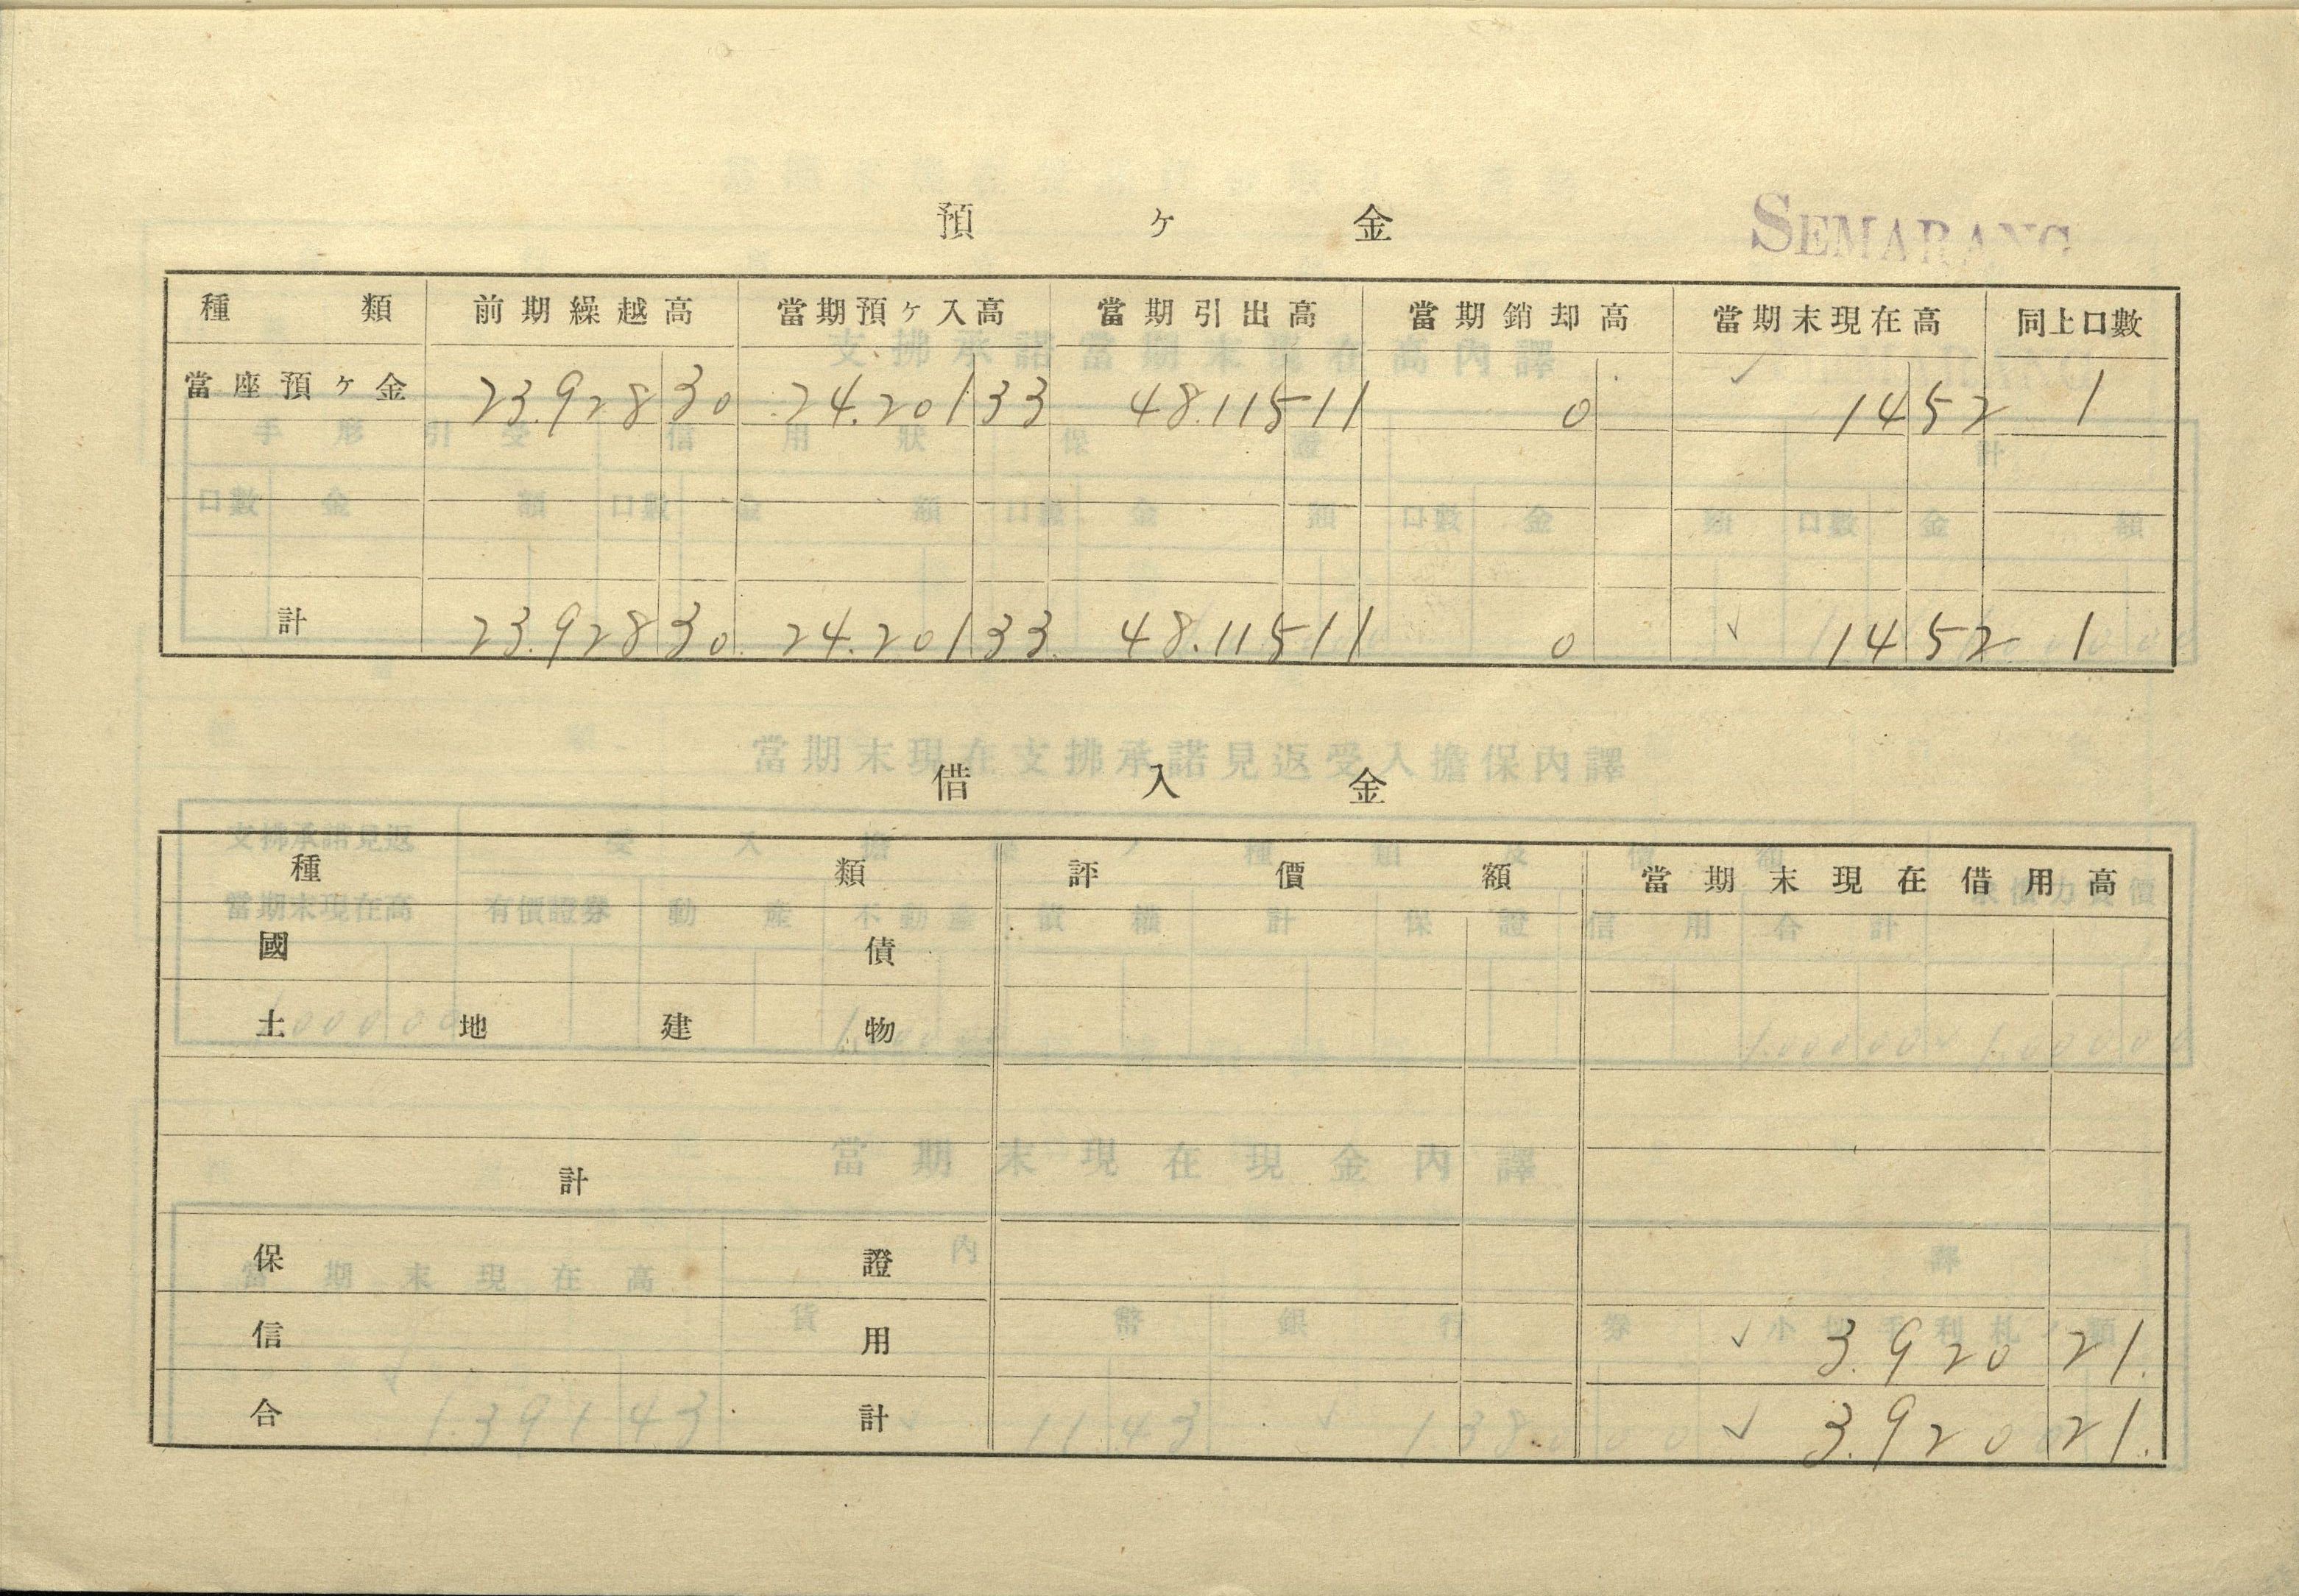 預ヶ金
SEMARANG
種類 前期繰越高 當期預ヶ入高 當期引出高 當期銷却高 當期末現在高 同上口數
當座預ヶ金 23.928 30 24.201 33 48.115 11 0 14 52 1
計 23.928 30 24.201 33 48.115 11 0 14 52 1
借入金
種類 評價額 當期末現在借用高
國債
土地建物
計
保證
信用 3.920 21.
合計 3.920 21.